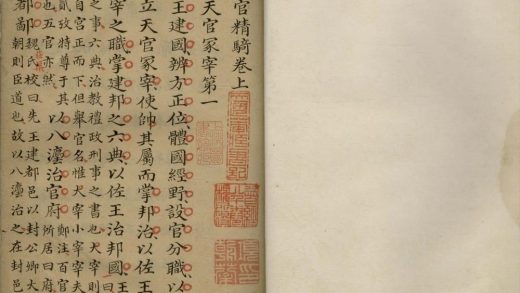 官精騎卷上
天官冢宰第一
王建國辨方正位體國經野設官分職以
立天官冢宰使帥其屬而掌邦治以佐王
宰之職掌建邦之六典以佐王治邦國曰
之事六典治教禮政刑事之書也大宰則
自宮正而下但舉官名惟大宰小宰宰夫
貳攷特尊于其
也五官亦然
以八灋治官府
鄭注百官
所居曰府
魏氏校曰先王建都邑以封公卿大
朝則臣道也故以八灋治之在封邑